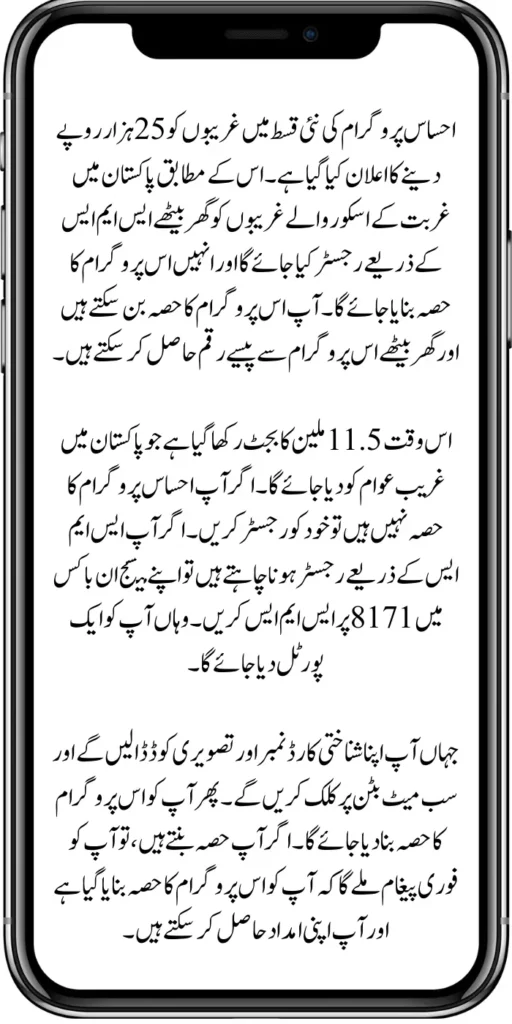 احساس پروگرام کی نئی قسط میں غریبوں کو 25 ہزار روپے
دینے کا اعلان کیا گیا ہے۔ اس کے مطابق پاکستان میں
غربت کے اسکور والے غریبوں کو گھر بیٹھے ایس ایم ایس
کے ذریعے رجسٹر کیا جائے گا اور انہیں اس پروگرام کا
حصہ بنایا جائے گا۔ آپ اس پروگرام کا حصہ بن سکتے ہیں
اور گھر بیٹھے اس پروگرام سے پیسے رقم حاصل کر سکتے ہیں۔
اس وقت 11.5 ملین کا بجٹ رکھا گیا ہے جو پاکستان میں
غریب عوام کو دیا جائے گا۔ اگر آپ احساس پروگرام کا
حصہ نہیں ہیں تو خود کو رجسٹر کریں۔ اگر آپ ایس ایم
ایس کے ذریعے رجسٹر ہونا چاہتے ہیں تو اپنے میسج ان باکس
میں 8171 پر ایس ایم ایس کریں۔ وہاں آپ کو ایک
پورٹل دیا جائے گا۔
جہاں آپ اپنا شناختی کارڈ نمبر اور تصویری کوڈ ڈالیں گے اور
سب میٹ بٹن پر کلک کریں گے۔ پھر آپ کو اس پروگرام
کا حصہ بنا دیا جائے گا۔ اگر آپ حصہ بنتے ہیں، تو آپ کو
فوری پیغام ملے گا کہ آپ کو اس پروگرام کا حصہ بنایا گیا ہے
اور آپ اپنی امداد حاصل کر سکتے ہیں۔